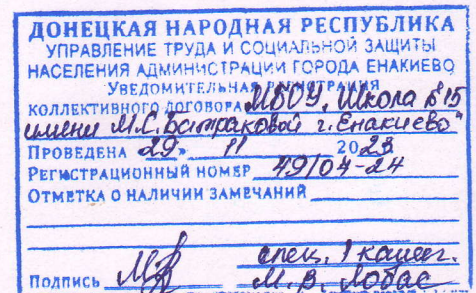 ДОНЕЦКАЯ НАРОДНАЯ РЕСПУБЛИКА
УПРАВЛЕНИЕ ТРУДА И СОЦИАЛЬНОЙ ЗАЩИТЫ
НАСЕЛЕНИЯ АДМИНИСТРАЦИИ ГОРОДА ЕНАКИЕВО
УВЕДОМИТЕЛЬНАЯ РЕГИСТРАЦИЯ
КОЛЛЕКТИВНОГО ДОГОВОРА МБОУ "Школа №15
имени М.С. Батраковой г. Енакиево"
ПРОВЕДЕНА 29 » 11 2023
РЕГИСТРАЦИОННЫЙ НОМЕР 49/04-24
ОТМЕТКА О НАЛИЧИИ ЗАМЕЧАНИЙ
спец. 1 катег.
ПОДПИСЬ М.В. Лобас